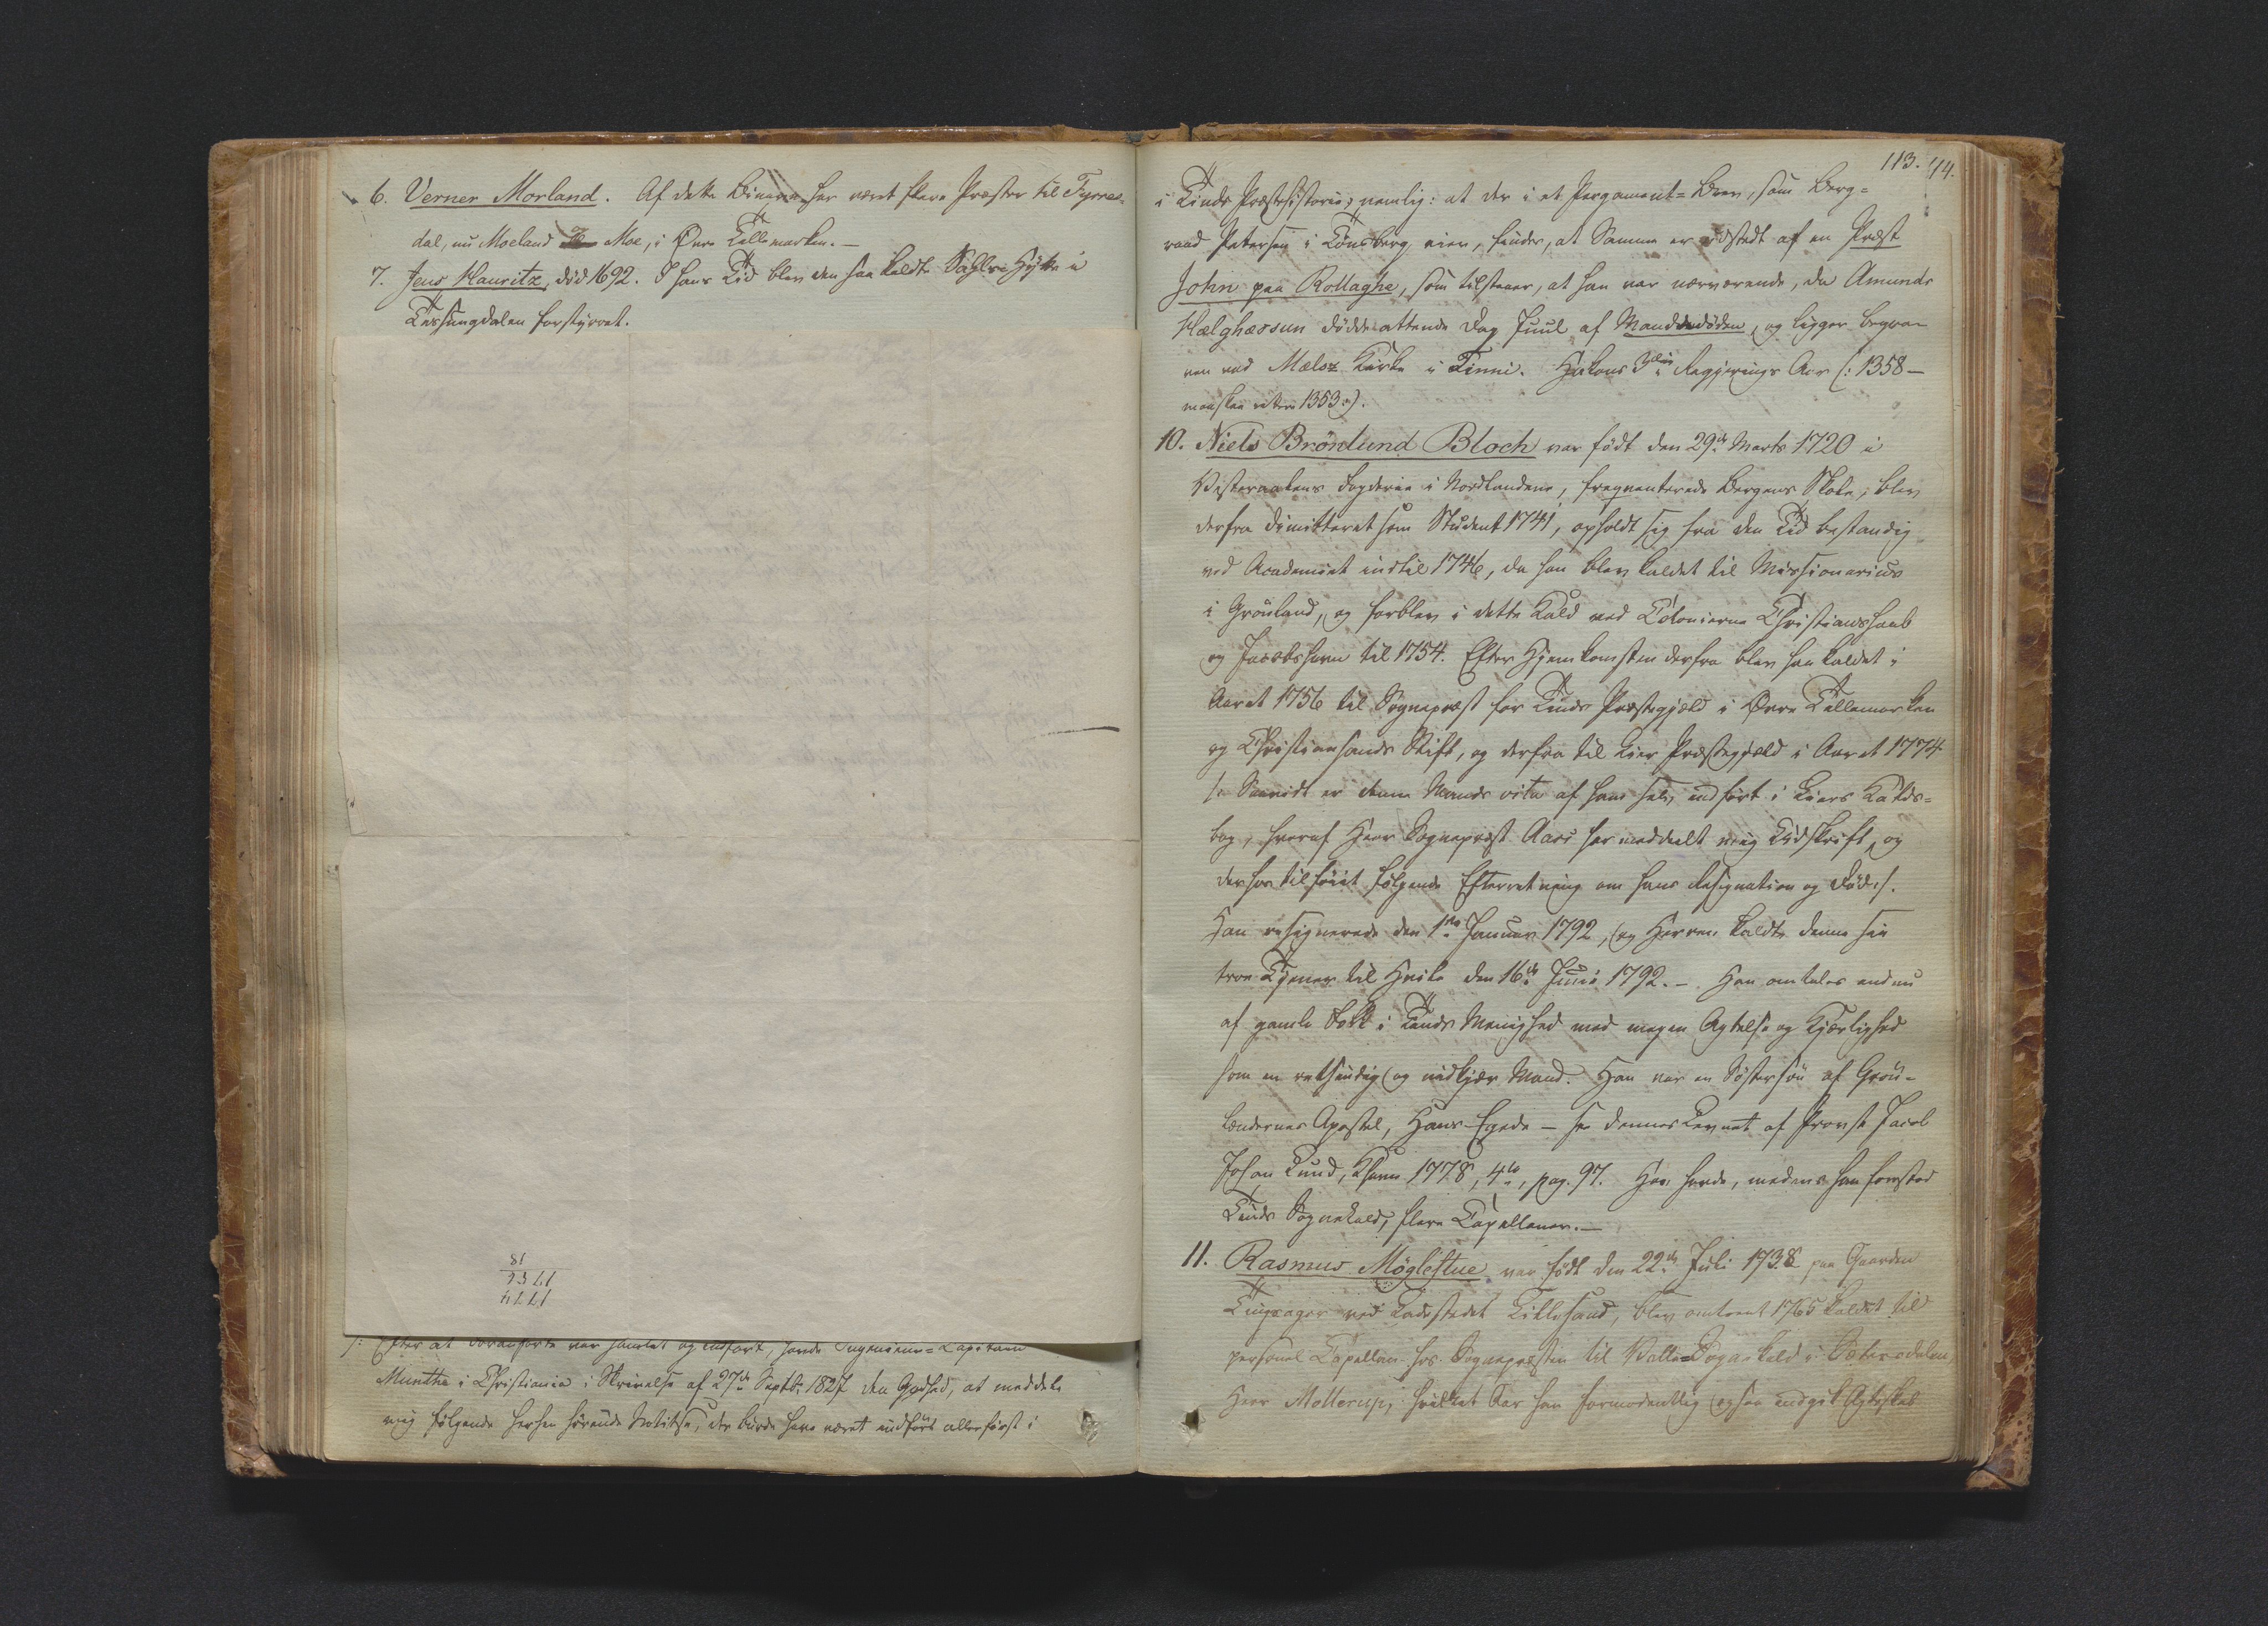 6. Verner Morland. Af dette Binavn har været flere Præster til Tyrres-
dal, nu Moeland Moe, i Øvre Tellemarken. —
7. Jens Mauritz, død 1692. I hans Tid blev den saa kaldte Sahlri Hytte i
Tessungdalen forstyrret.
18
1792
1774
/: Efter at Foranførte var samlet og indført, havde Ingenieur-Capitain
Munthe i Christiania i Skrivelse af 27de Septbr 1827 den Godhed, at meddele
mig følgende herhen hørende Notitse, der burde have været indført allerførst i
113. 114.
i Tinds Præstehistorie; nemlig: at der i et Pergament-Brev, som Berg-
raad Petersen i Kongsberg eier, findes, at Samme er udstedt af en Præst
John paa Rollaghe, som tilstaaer, at han var nærværende, da Amunde
Hælghæssun dødde attende Dag Juul af Manddødden, og ligger begra-
ven ved Mælsz Kirke i Tinni. Hakons 3die Regjerings Aar (: 1358 —
maaskee rettere 1353 :).
10. Niels Brønlund Bloch var født den 29de Marts 1720 i
Vesteraalens Fogderie i Nordlandene, freqventerede Bergens Skole, blev
derfra dimitteret som Student 1741, opholdt sig fra den Tid bestandig
ved Academiet indtil 1746, da han blev kaldet til Missionarius
i Grønland, og forblev i dette Kald ved Colonierne Christianshaab
og Jacobshavn til 1754. Efter Hjemkomsten derfra blev han kaldet i
Aaret 1756 til Sognepræst for Tinds Præstegjæld i Øvre Tellemarken
og Christiansands Stift, og derfra til Lier Præstegjæld i Aaret 1774
/: Saavidt er denne Mands vita af ham selv indført i Liers Kalds-
bog, hvoraf Herr Sognepræst Aars har meddeelt mig Udskrift, og
derhos tilføiet følgende Efterretning om hans Resignation og Død :/.
Han resignerede den 1ste Januar 1792, og Herren kaldte denne sin
troe Tjener til Hvile den 16de Junii 1792. — Han omtales endnu
af gamle Folk i Tinds Menighed med megen Agtelse og Kjærlighed
som en retsindig og nidkjær Mand. Han var en Søstersøn af Grøn-
lændernes Apostel, Hans Egede — see dennes Levnet af Provst Jacob
Johan Lund, Khavn 1778, 4to, pag. 97. Han havde, medens han forestod
Tinds Sognekald, flere Capellaner. —
11. Rasmus Møglestue var født den 22de Juli 1738 paa Gaarden
Tingsager ved Ladestedet Lillesand, blev omtrent 1765 kaldet til
personel Capellan hos Sognepræsten til Valle Sognekald i Sætersdalen,
Herr Mollerup; hvilket Aar han formodentlig ogsaa indgik Ægteskab